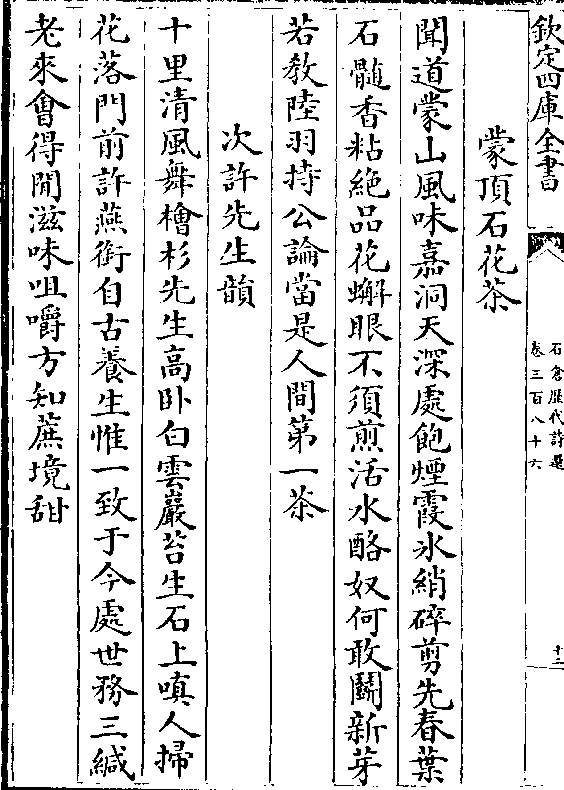 欽定四庫全書
石倉歷代詩選
卷三百八十六
十二
蒙頂石花茶
聞道蒙山風味嘉洞天深處飽煙霞氷綃碎剪先春葉
石髓香粘絶品花蠏眼不須煎活水酪奴何敢鬭新芽
若教陸羽持公論當是人間第一茶
次許先生韻
十里清風舞檜杉先生高卧白雲巖苔生石上嗔人掃
花落門前許燕銜自古養生惟一致于今處世務三緘
老來會得閒滋味咀嚼方知蔗境甜